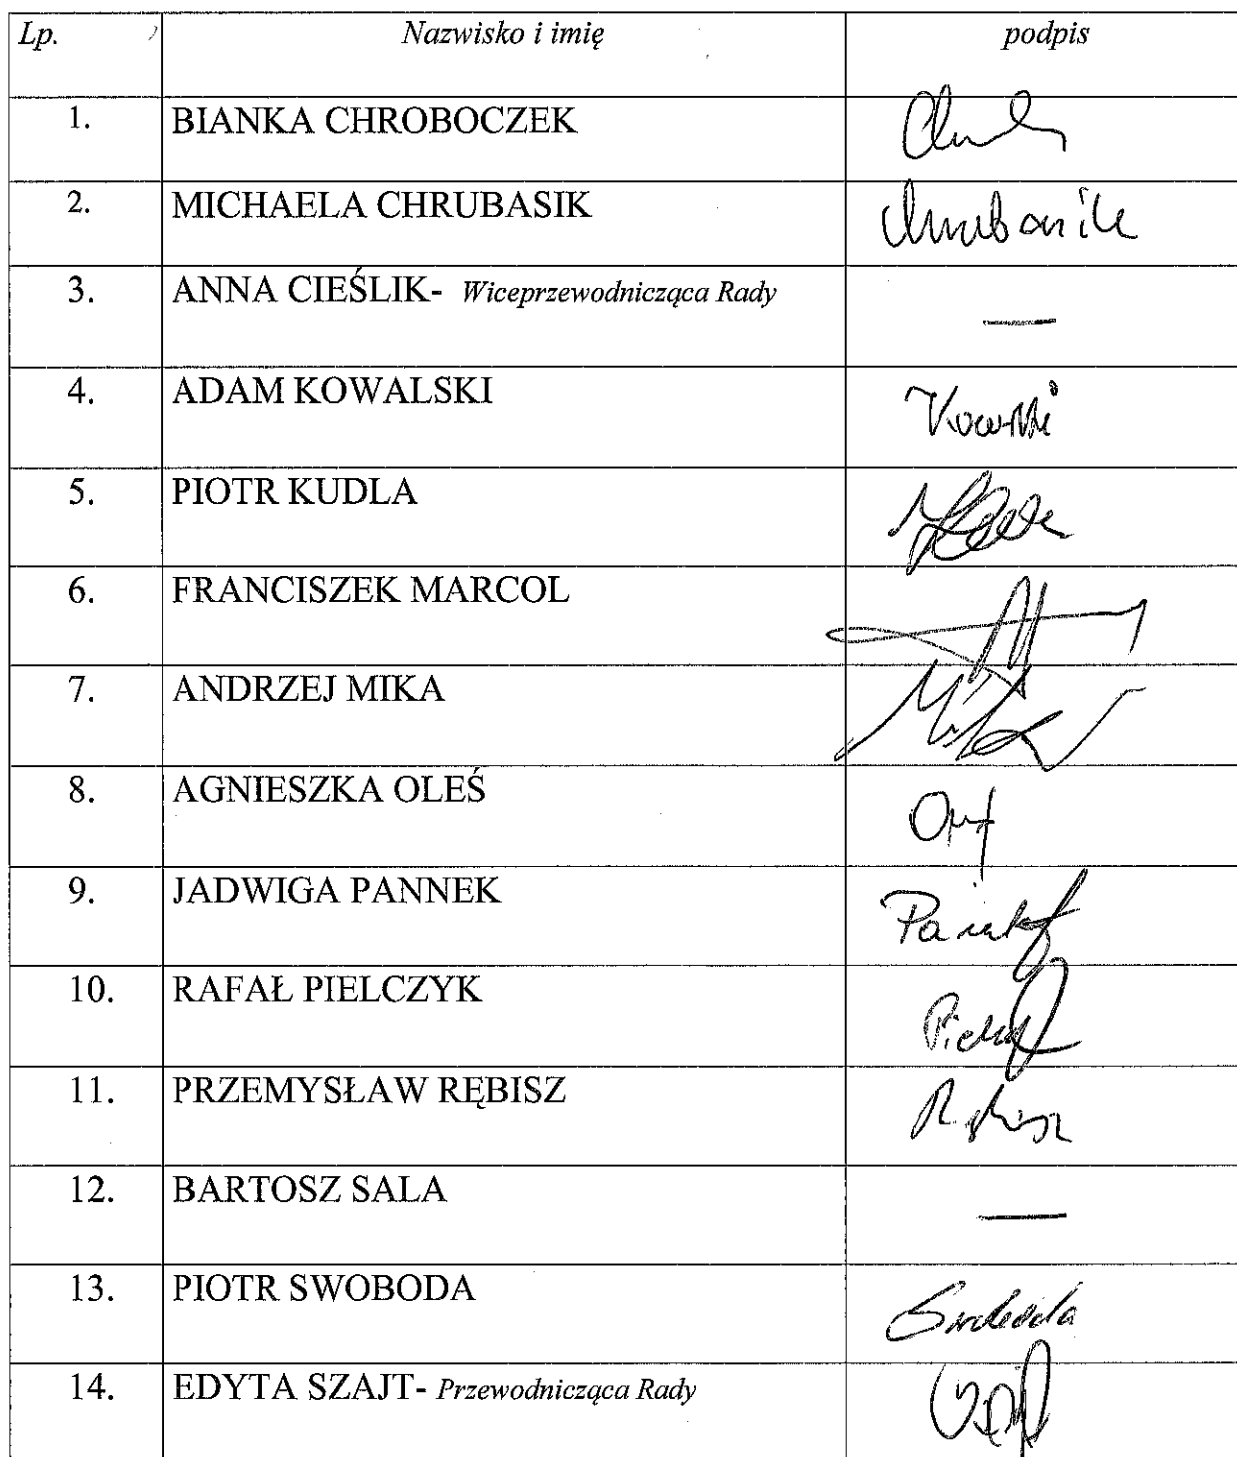 Lp. Nazwisko i imię podpis
1. BIANKA CHROBOCZEK
2. MICHAELA CHRUBASIK Chrubasik
3. ANNA CIEŚLIK- Wiceprzewodnicząca Rady —
4. ADAM KOWALSKI
5. PIOTR KUDLA
6. FRANCISZEK MARCOL
7. ANDRZEJ MIKA Mika
8. AGNIESZKA OLEŚ
9. JADWIGA PANNEK
10. RAFAŁ PIELCZYK
11. PRZEMYSŁAW RĘBISZ
12. BARTOSZ SALA —
13. PIOTR SWOBODA Swoboda
14. EDYTA SZAJT- Przewodnicząca Rady